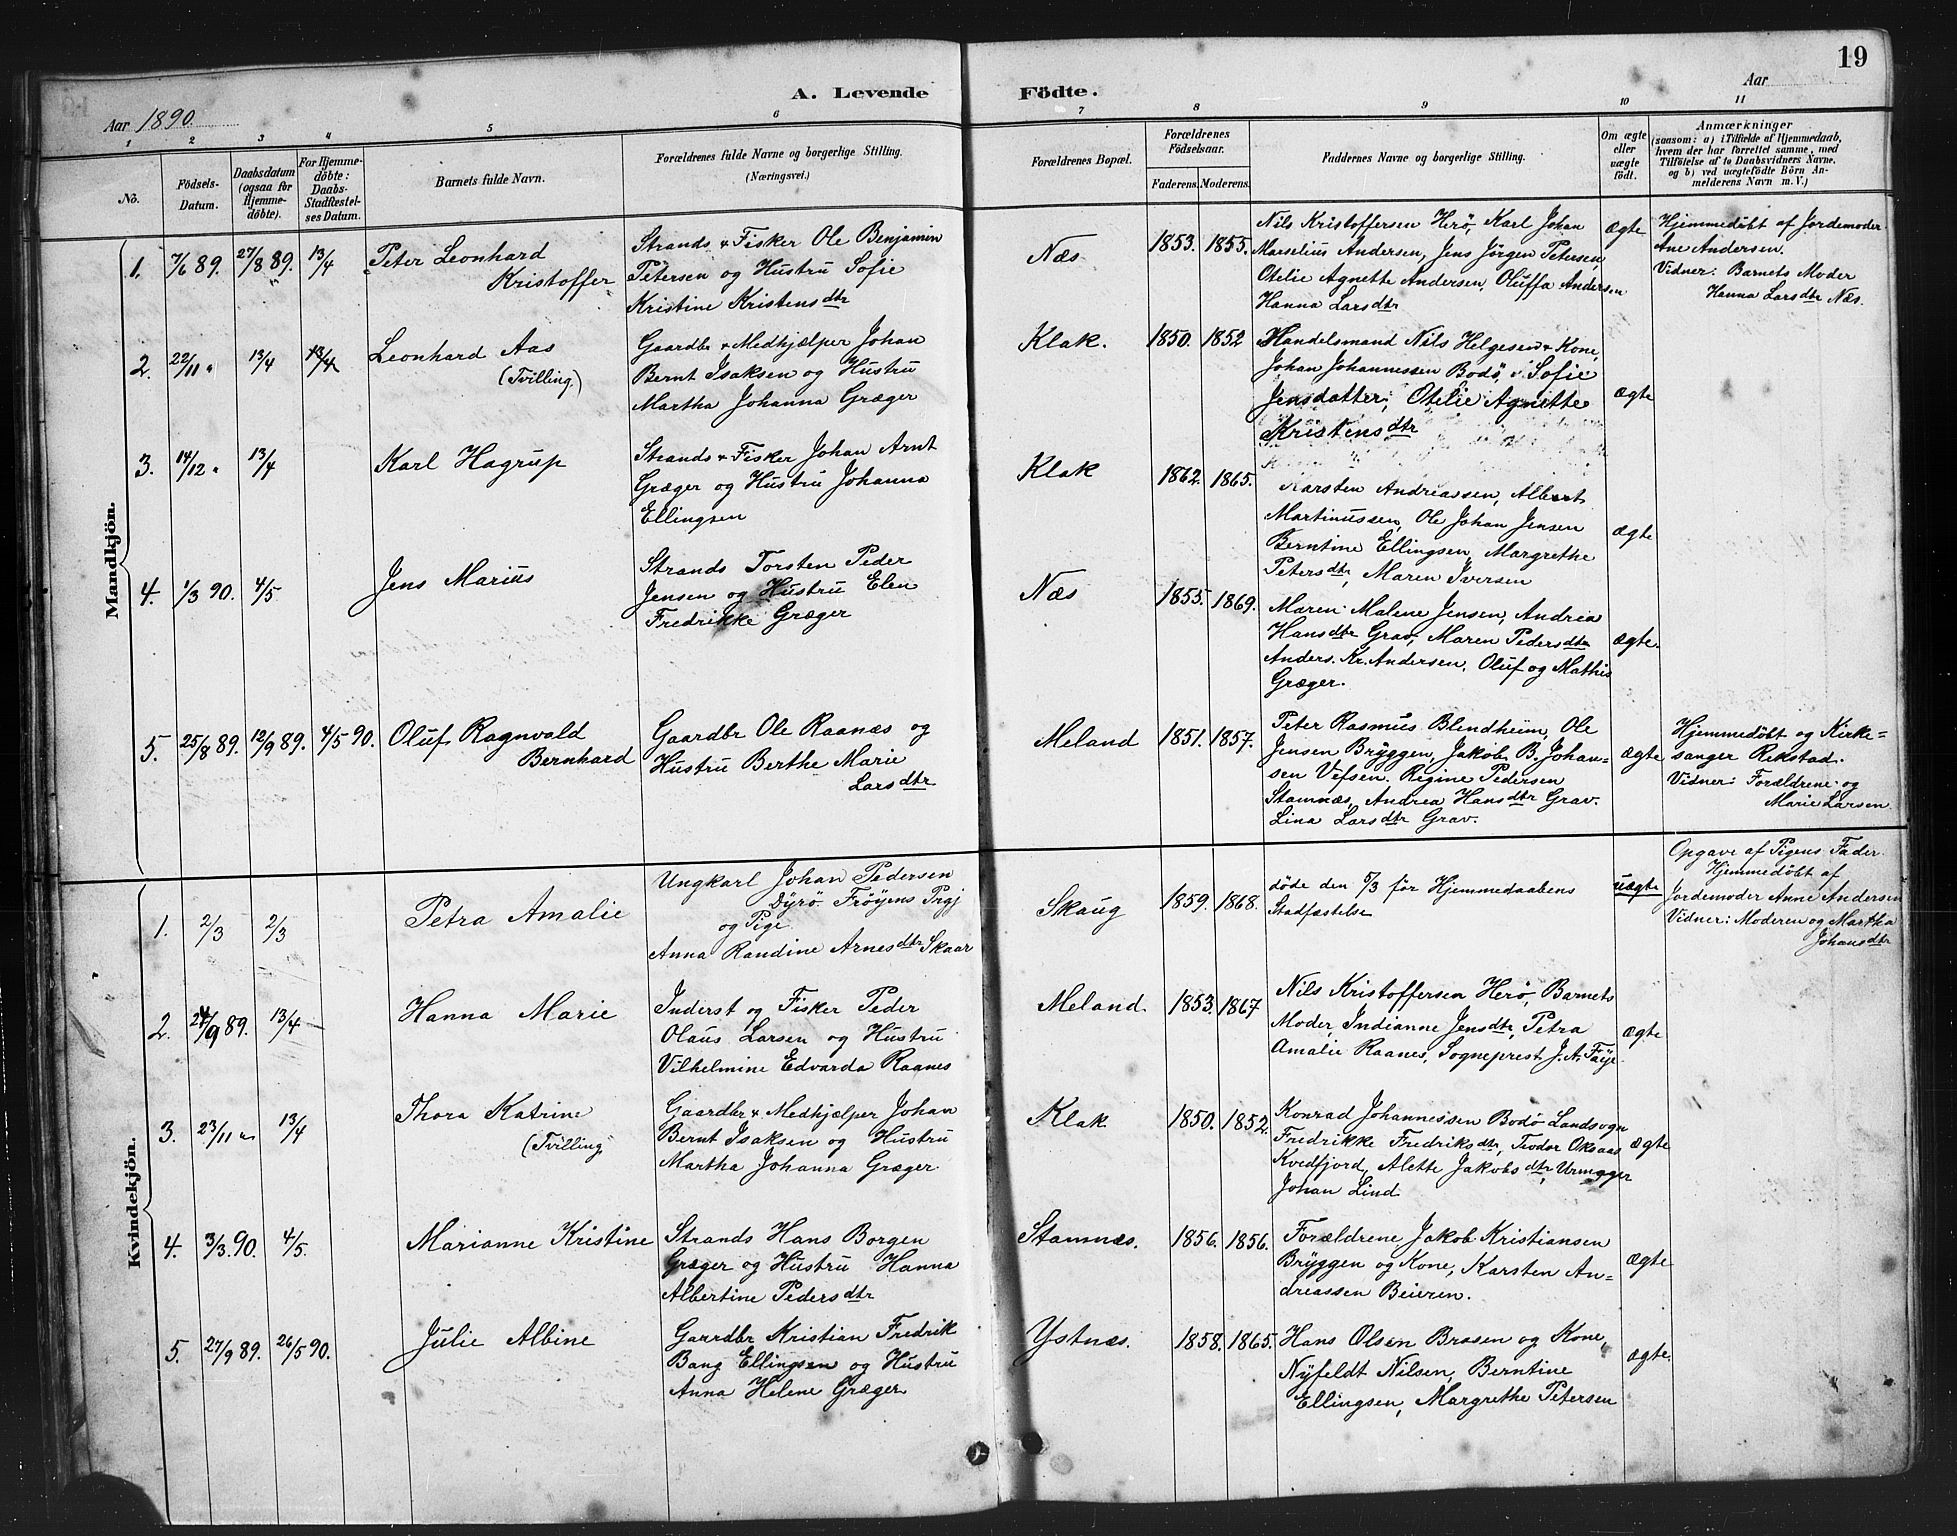 19
Aar 1890.
A. Levende Födte.
Aar
1 2 3 4 5 6 7 8 9 10 11
No.
Födsels-
Datum.
Daabsdatum
(ogsaa for
Hjemme-
döbte).
For Hjemme-
döbte:
Daabs-
Stadfæstel-
ses Datum.
Barnets fulde Navn.
Forældrenes fulde Navne og borgerlige Stilling.
(Næringsvei.)
Forældrenes Bopæl.
Forældrenes
Födselsaar.
Faderens. Moderens.
Faddernes Navne og borgerlige Stilling.
Om ægte
eller
uægte
födt.
Anmærkninger
(saasom: a) i Tilfælde af Hjemmedaab,
hvem der har forrettet samme, med
Tilföielse af to Daabsvidners Navne,
og b) ved uægtefödte Börn An-
melderens Navn m. V.)
Mandkjön.
1. 7/6 89. 27/8 89. 13/4
Peter Leonhard
Kristoffer
Strands. & Fisker Ole Benjamin
Petersen og Hustru Sofie
Kristine Kristensdtr
Næs
1853. 1855.
Nils Kristoffersen Herö, Karl Johan
Marselius Andersen, Jens Jörgen Petersen,
Otelie Agnette Andersen, Oluffa Andersen
Hanna Larsdtr
ægte
Hjemmedöbt af Jordemoder
Ane Andersen.
Vidner: Barnets Moder
Hanna Larsdtr Næs.
2. 22/11 " 13/4 13/4
Leonhard Aas
(Tvilling.)
Gaardbr & Medhjælper Johan
Bernt Isaksen og Hustru
Martha Johanna Græger
Klak.
1850. 1852
Handelsmand Nils Helgesen & Kone,
Johan Johannessen Bodö, Sofie
Jensdatter, Otelie Agnette
Kristensdtr
ægte
3. 14/12 " 13/4
Karl Hagrup
Strands & Fisker Johan Arnt
Græger og Hustru Johanna
Ellingsen
Klak
1862. 1865.
Karsten Andreassen, Albert
Martinussen, Ole Johan Jensen
Berntine Ellingsen, Margrethe
Petersdtr, Maren Iversen
ægte
4. 1/3 90. 4/5
Jens Marius
Strands Torsten Peder
Jensen og Hustru Elen
Fredrikke Græger
Næs
1855. 1869.
Maren Malene Jensen, Andrea
Hansdtr Grav, Maren Pedersdtr
Anders. Kr. Andersen. Oluf og Mathis
Græger.
ægte.
5. 25/8 89. 12/9 89. 4/5 90.
Oluf Ragnvald
Bernhard
Gaardbr Ole Raanæs og
Hustru Berthe Marie
Larsdtr
Meland
1851. 1857.
Peter Rasmus Blendheim, Ole
Jensen Bryggen, Jakob B. Johan-
sen Vefsen. Regine Pedersen
Stamnæs, Andrea Hansdtr Grav.
Lina Larsdtr Grav.
ægte
Hjemmedöbt og Kirke-
sanger Rekstad.
Vidner: Forældrene og
Marie Larsen.
Kvindekjön.
1. 2/3 2/3
Petra Amalie
Ungkarl Johan Pedersen
Dyrö Fröyens Prgj
og Pige
Anna Randine Arnesdtr Skaar
Skaug
1859. 1868.
döde den 5/3 för Hjemmedaabens
Stadfæstelse
uægte
Opgave af Pigens Fader.
Hjemmedöbt af
Jordemoder Anne Andersen
Vidner: Moderen og Martha
Johansdtr
2. 24/9 89. 13/4
Hanna Marie
Inderst og Fisker Peder
Olaus Larsen og Hustru
Vilhelmine Edvarda Raanes
Meland.
1853. 1867
Nils Kristoffersen Herö, Barnets
Moder, Indianne Jensdtr, Petra
Amalie Raanes, Sogneprest J. A. Faye.
ægte
3. 23/11 " 13/4
Thora Katrine
(Tvilling)
Gaardbr & Medhjælper Johan
Bernt Isaksen og Hustru
Martha Johanna Græger.
Klak
1850. 1852.
Konrad Johannessen Bodö Landsogn
Fredrikke Fredriksdtr, Teodor Oksaas
Kvedfjord, Alette Jakobsdtr, Urmager
Johan Lind
ægte
4. 3/3. 90. 4/5.
Marianne Kristine
Strands Hans Borgen
Græger og Hustru Hanna
Albertine Pedersdtr
Stamnæs.
1856. 1856.
Forældrene Jakob Kristiansen
Bryggen og Kone, Karsten An-
dreassen Beieren.
ægte
5. 27/9 89. 26/5 90.
Julie Albine
Gaardbr Kristian Fredrik
Bang Ellingsen og Hustru
Anna Helene Græger
Ystnæs.
1858. 1865.
Hans Olsen Brasen og Kone,
Nyfeldt Nilsen, Berntine
Ellingsen, Margrethe Petersen
ægte.